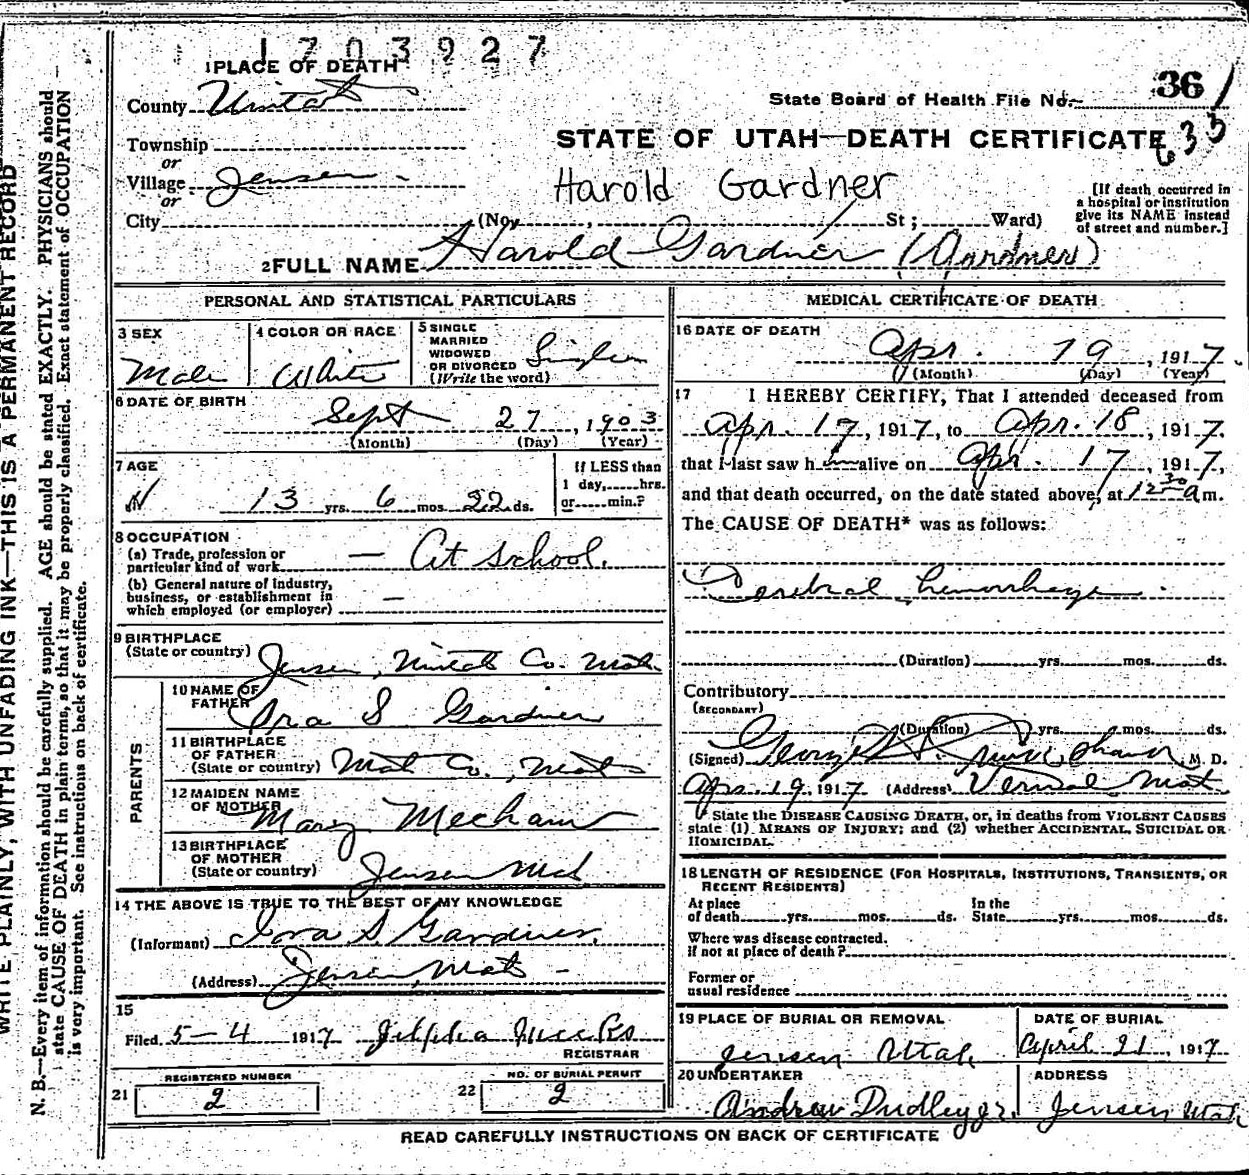 1703927
1 PLACE OF DEATH
County Uintah
State Board of Health File No. 36
635
STATE OF UTAH—DEATH CERTIFICATE
Township
or
Village Jensen
or
City (No. , St; Ward)
Harold Gardner
[If death occurred in
a hospital or institution
give its NAME instead
of street and number.]
2 FULL NAME Harold Gardner (Gardner)
PERSONAL AND STATISTICAL PARTICULARS
3 SEX
Male
4 COLOR OR RACE
White
5 SINGLE
MARRIED
WIDOWED
OR DIVORCED
(Write the word)
Single
6 DATE OF BIRTH
Sept 27, 1903
(Month) (Day) (Year)
7 AGE
13 yrs. 6 mos. 22 ds.
If LESS than
1 day, hrs.
or min.?
8 OCCUPATION
(a) Trade, profession or
particular kind of work — At school.
(b) General nature of industry,
business, or establishment in
which employed (or employer) —
9 BIRTHPLACE
(State or country) Jensen, Uintah Co. Utah
PARENTS
10 NAME OF
FATHER Ira S Gardner
11 BIRTHPLACE
OF FATHER
(State or country) Utah Co., Utah
12 MAIDEN NAME
OF MOTHER Mary Mecham
13 BIRTHPLACE
OF MOTHER
(State or country) Jensen Utah
14 THE ABOVE IS TRUE TO THE BEST OF MY KNOWLEDGE
(Informant) Ira S Gardner.
(Address) Jensen, Utah —
15
Filed 5-4 1917
REGISTRAR
REGISTERED NUMBER
21 2
NO. OF BURIAL PERMIT
22 2
MEDICAL CERTIFICATE OF DEATH
16 DATE OF DEATH
Apr. 19, 1917
(Month) (Day) (Year)
17 I HEREBY CERTIFY, That I attended deceased from
Apr. 17, 1917, to Apr. 18, 1917.
that I last saw him alive on Apr. 17, 1917,
and that death occurred, on the date stated above, at 12 30 a m.
The CAUSE OF DEATH* was as follows:
Cerebral hemorrhage
(Duration) yrs. mos. ds.
Contributory
(SECONDARY)
(Duration) yrs. mos. ds.
(Signed) George M. D.
Apr. 19, 1917 (Address) Vernal Utah.
* State the DISEASE CAUSING DEATH, or, in deaths from VIOLENT CAUSES
state (1) MEANS OF INJURY; and (2) whether ACCIDENTAL, SUICIDAL OR
HOMICIDAL.
18 LENGTH OF RESIDENCE (FOR HOSPITALS, INSTITUTIONS, TRANSIENTS, OR
RECENT RESIDENTS)
At place
of death yrs. mos. ds. In the
State yrs. mos. ds.
Where was disease contracted.
if not at place of death?
Former or
usual residence
19 PLACE OF BURIAL OR REMOVAL
Jensen Utah
DATE OF BURIAL
April 21, 1917
20 UNDERTAKER
Andrew Dudley jr.
ADDRESS
Jensen Utah
READ CAREFULLY INSTRUCTIONS ON BACK OF CERTIFICATE
WRITE PLAINLY, WITH UNFADING INK—THIS IS A PERMANENT RECORD
N. B.—Every item of information should be carefully supplied. AGE should be stated EXACTLY. PHYSICIANS should
state CAUSE OF DEATH in plain terms, so that it may be properly classified. Exact statement of OCCUPATION
is very important. See instructions on back of certificate.